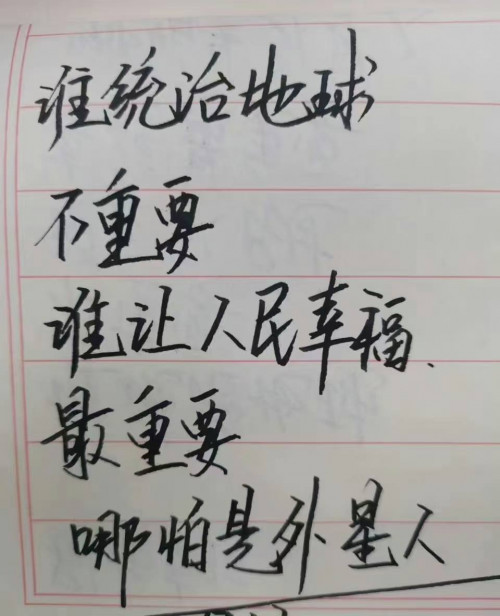 谁统治地球
不重要
谁让人民幸福、
最重要
哪怕是外星人